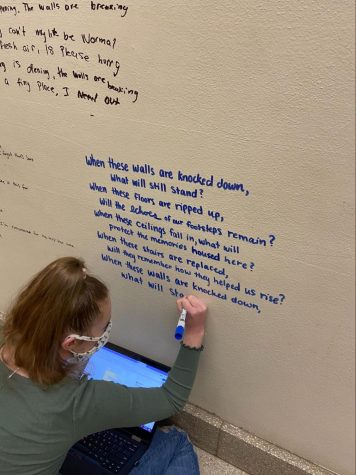 pening. The walls are breaking
can't my life be Normal
fresh air, Is Please hurry
ng is closing, the walls are breaking
a tiny Place, I Need out
When these walls are knocked down,
What will still stand?
When these floors are ripped up,
Will the echoes of our footsteps remain?
When these ceilings fall in, what will
protect the memories housed here?
When these stairs are replaced,
Will they remember how they helped us rise?
When these walls are knocked down,
What will sta